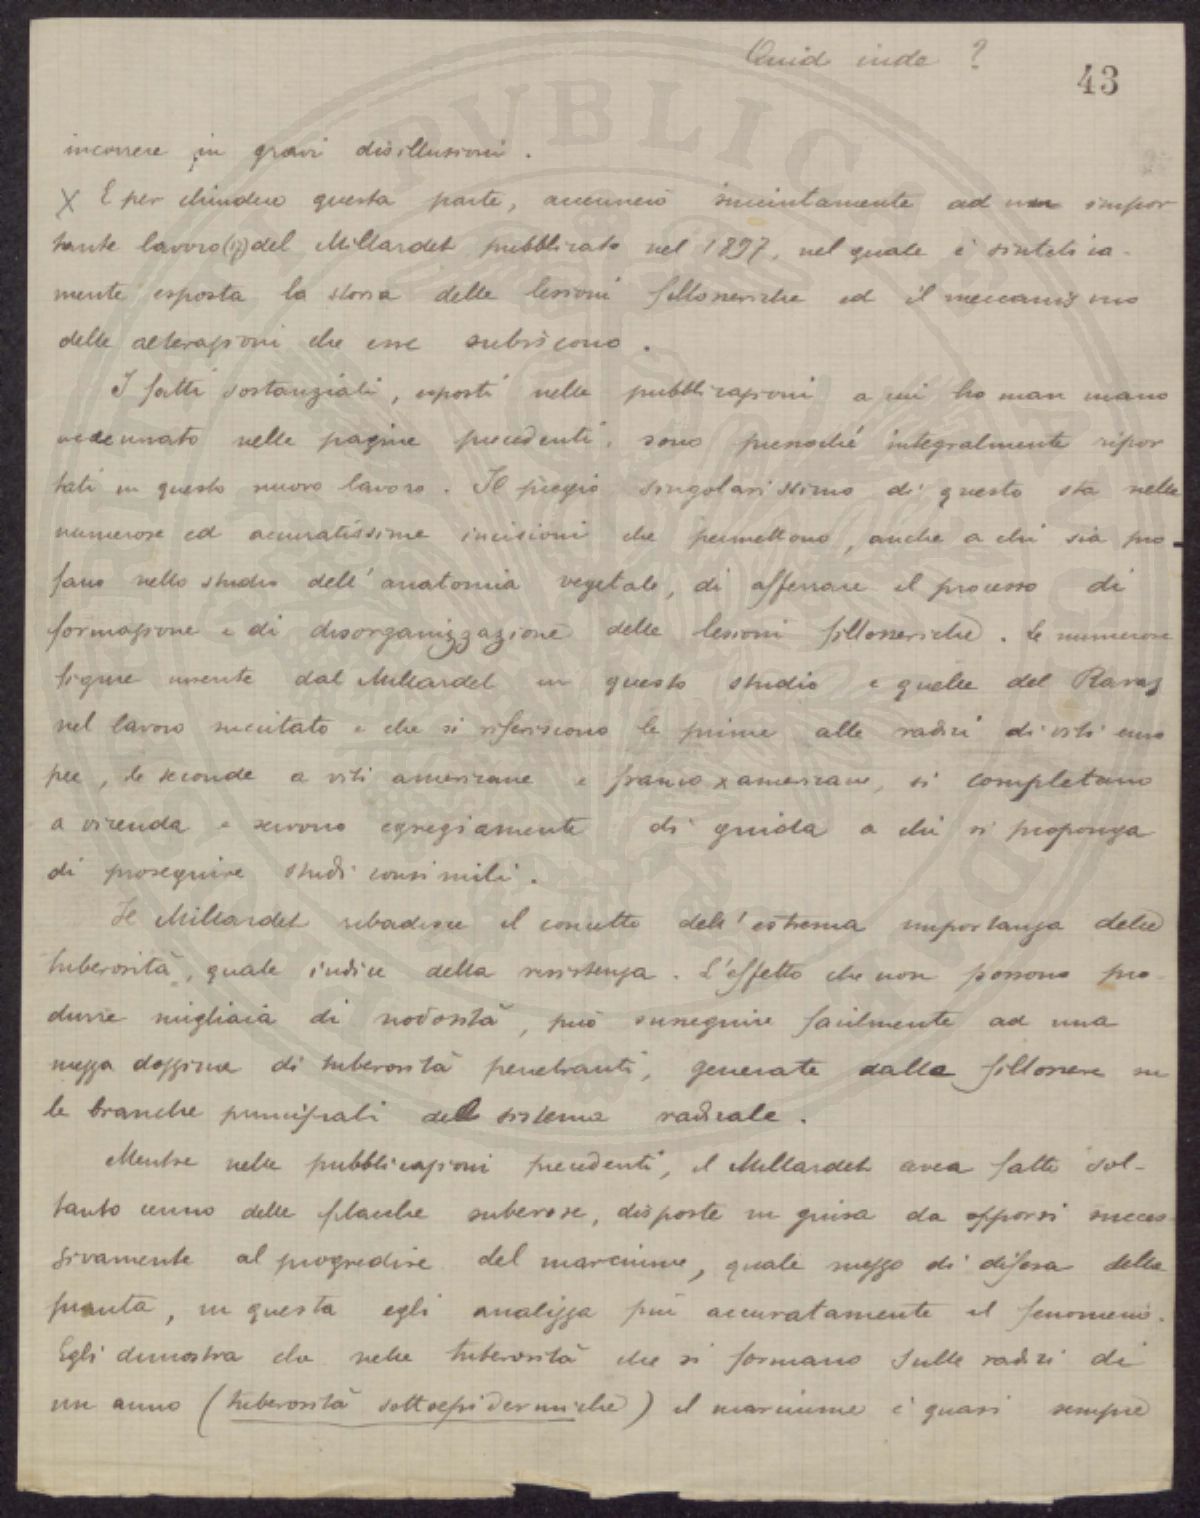 Quid inde ?
43
incorrere in gravi disillusioni .
X E per chiudere questa parte, accennerò succintamente ad un impor
tante lavoro (17) del Millardet pubblicato nel 1897, nel quale è sintetica-
mente esposta la storia delle lesioni fillosseriche ed il meccanismo
delle alterazioni che esse subiscono .
I fatti sostanziali, esposti nelle pubblicazioni a cui ho man mano
accennato nelle pagine precedenti, sono pressoché integralmente ripor
tati in questo nuovo lavoro . Il pregio singolarissimo di questo sta nelle
numerose ed accuratissime incisioni che permettono, anche a chi sia pro-
fano nello studio dell'anatomia vegetale, di afferrare il processo di
formazione e di disorganizzazione delle lesioni fillosseriche . Le numerose
figure inserite dal Millardet in questo studio e quelle del Ravaz
nel lavoro succitato e che si riferiscono le prime alle radici di viti euro
pee, le seconde a viti americane e franco x americane, si completano
a vicenda e servono egregiamente di guida a chi si proponga
di proseguire studi consimili .
Il Millardet ribadisce il concetto dell'estrema importanza delle
tuberosità, quale indice della resistenza . L'effetto che non possono pro-
durre migliaia di nodosità, può susseguire facilmente ad una
mezza dozzina di tuberosità penetranti, generate dalla fillossera su
le branche principali del sistema radicale .
Mentre nelle pubblicazioni precedenti, il Millardet avea fatto sol-
tanto cenno delle placche suberose, disposte in guisa da opporsi succes-
sivamente al progredire del marciume, quale mezzo di difesa della
pianta, in questa egli analizza più accuratamente il fenomeno.
Egli dimostra che nelle tuberosità che si formano sulle radici di
un anno (tuberosità sottoepidermiche) il marciume è quasi sempre